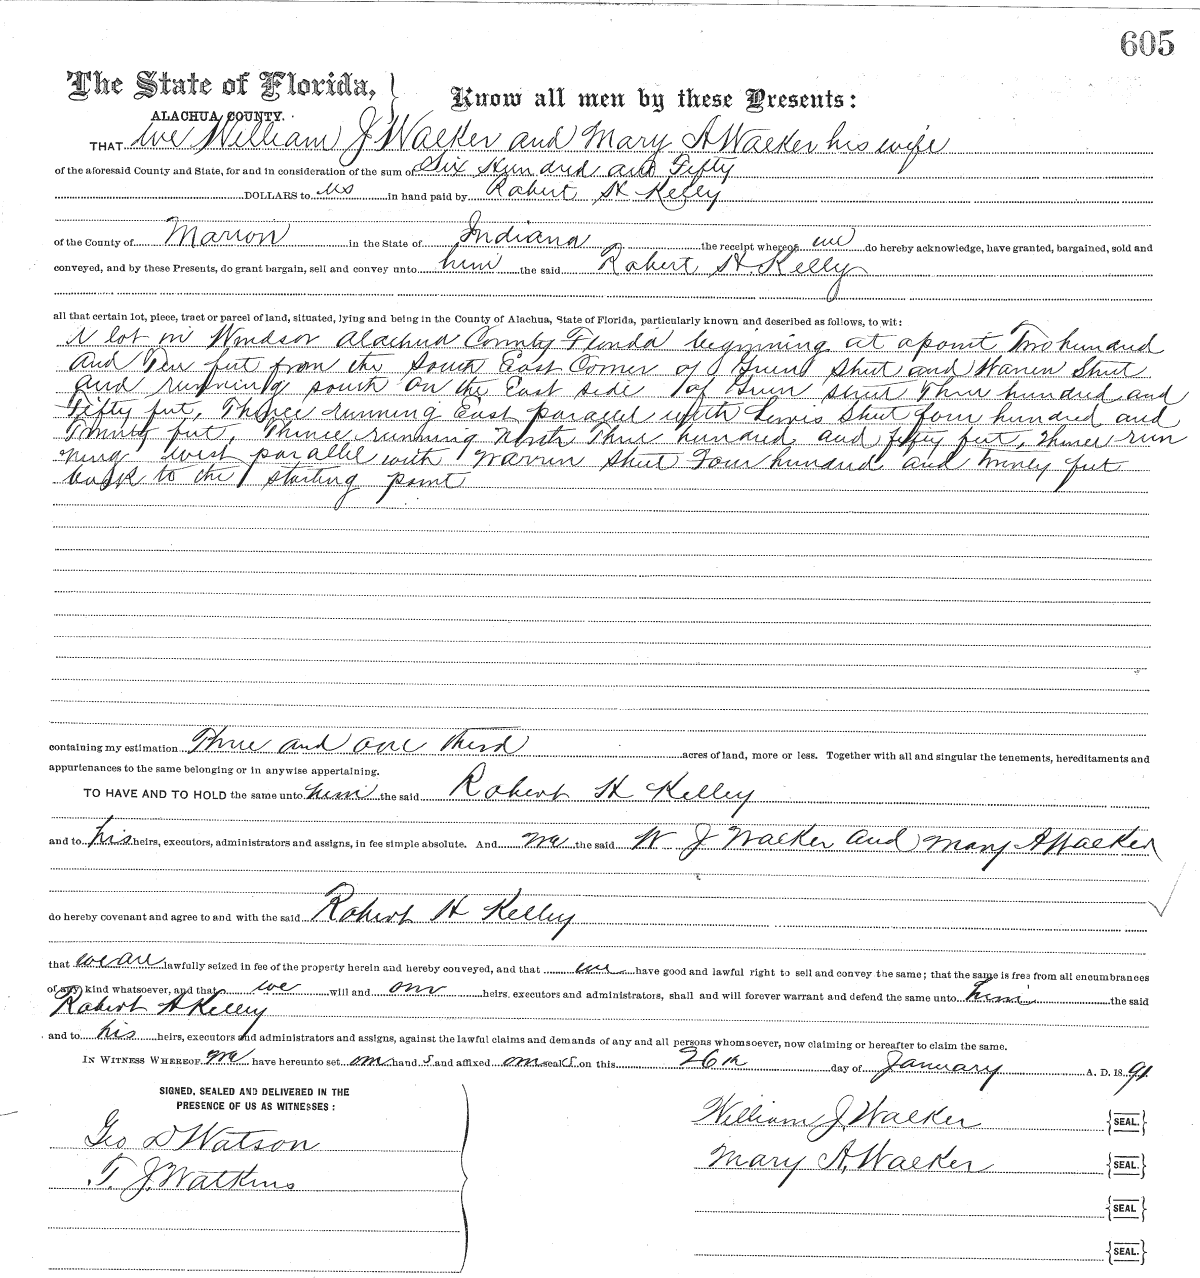 605
The State of Florida,
Know all men by these Presents:
ALACHUA COUNTY.
THAT We William J Walker and Mary A Walker his wife
of the aforesaid County and State, for and in consideration of the sum of Six Hundred and Fifty
DOLLARS to us in hand paid by Robert H Kelley
of the County of Marion in the State of Indiana the receipt whereof we do hereby acknowledge, have granted, bargained, sold and
conveyed, and by these Presents, do grant bargain, sell and convey unto him the said Robert H Kelley
all that certain lot, piece, tract or parcel of land, situated, lying and being in the County of Alachua, State of Florida, particularly known and described as follows, to wit:
A lot in Windsor Alachua County Florida beginning at a point Two hundred
and Ten feet from the South East Corner of Green Street and Warren Street
and running south on the East side of Green street Three hundred and
Fifty feet, Thence running East parallel with Lewis Street four hundred and
Twenty feet, Thence running North Three hundred and fifty feet, Thence run
ning west parallel with Warren Street Four hundred and Twenty feet
back to the starting point
containing my estimation Three and one third acres of land, more or less. Together with all and singular the tenements, hereditaments and
appurtenances to the same belonging or in anywise appertaining.
TO HAVE AND TO HOLD the same unto him the said Robert H Kelley
and to his heirs, executors, administrators and assigns, in fee simple absolute. And we the said W J Walker and Mary A Walker
do hereby covenant and agree to and with the said Robert H Kelley
that we are lawfully seized in fee of the property herein and hereby conveyed, and that we have good and lawful right to sell and convey the same; that the same is free from all encumbrances
of any kind whatsoever, and that we will and our heirs, executors and administrators, shall and will forever warrant and defend the same unto him the said
Robert H Kelley
and to his heirs, executors and administrators and assigns, against the lawful claims and demands of any and all persons whomsoever, now claiming or hereafter to claim the same.
IN WITNESS WHEREOF, we have hereunto set our hands and affixed our seals on this 26th day of January A. D. 1891
SIGNED, SEALED AND DELIVERED IN THE
PRESENCE OF US AS WITNESSES:
Geo D Watson
T. J. Watkins
William J. Walker SEAL.
Mary A. Walker SEAL.
SEAL
SEAL.